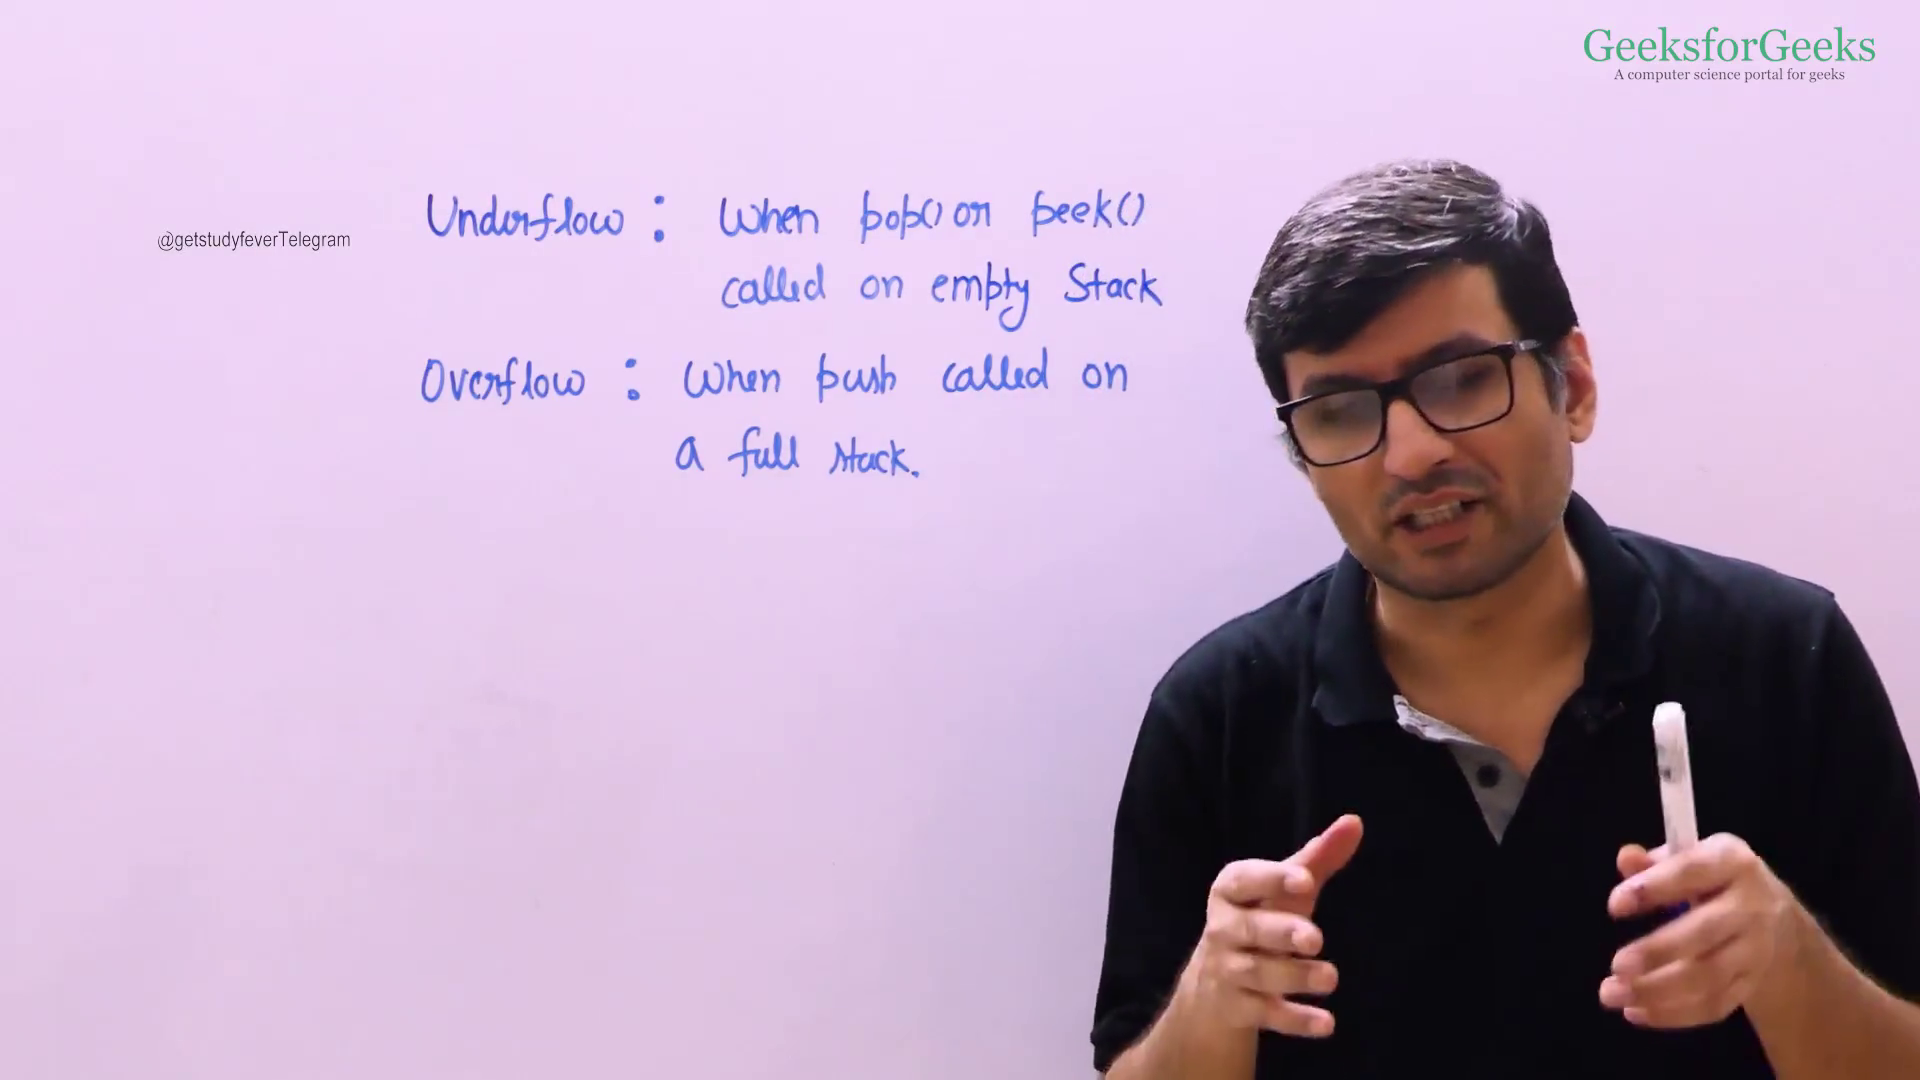 GeeksforGeeks
A computer science portal for geeks
@getstudyfeverTelegram
Underflow : When pop() or peek()
called on empty Stack
Overflow : When push called on
a full stack.